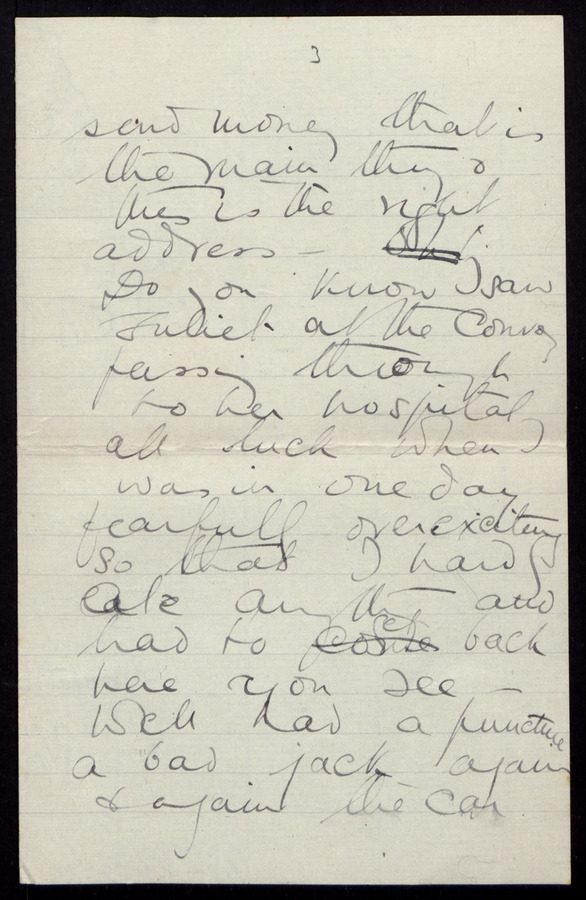 3
send money that is
the main thing &
this is the right
address –
Do you know I saw
Juliet at the Convoy
passing through
to her hospital
all luck when I
was in one day
fearfull overexciting
so that I hardly
eat anything and
had to get come back
here & you see –
Well had a puncture
a bad jack again
& again the car